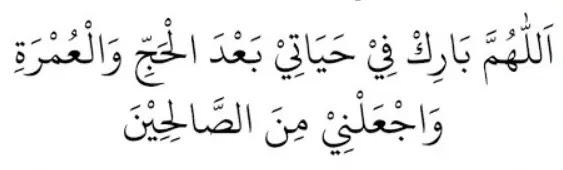 اَللّٰهُمَّ بَارِكْ فِيْ حَيَاتِيْ بَعْدَ الْحَجِّ وَالْعُمْرَةِ
وَاجْعَلْنِيْ مِنَ الصَّالِحِيْنَ